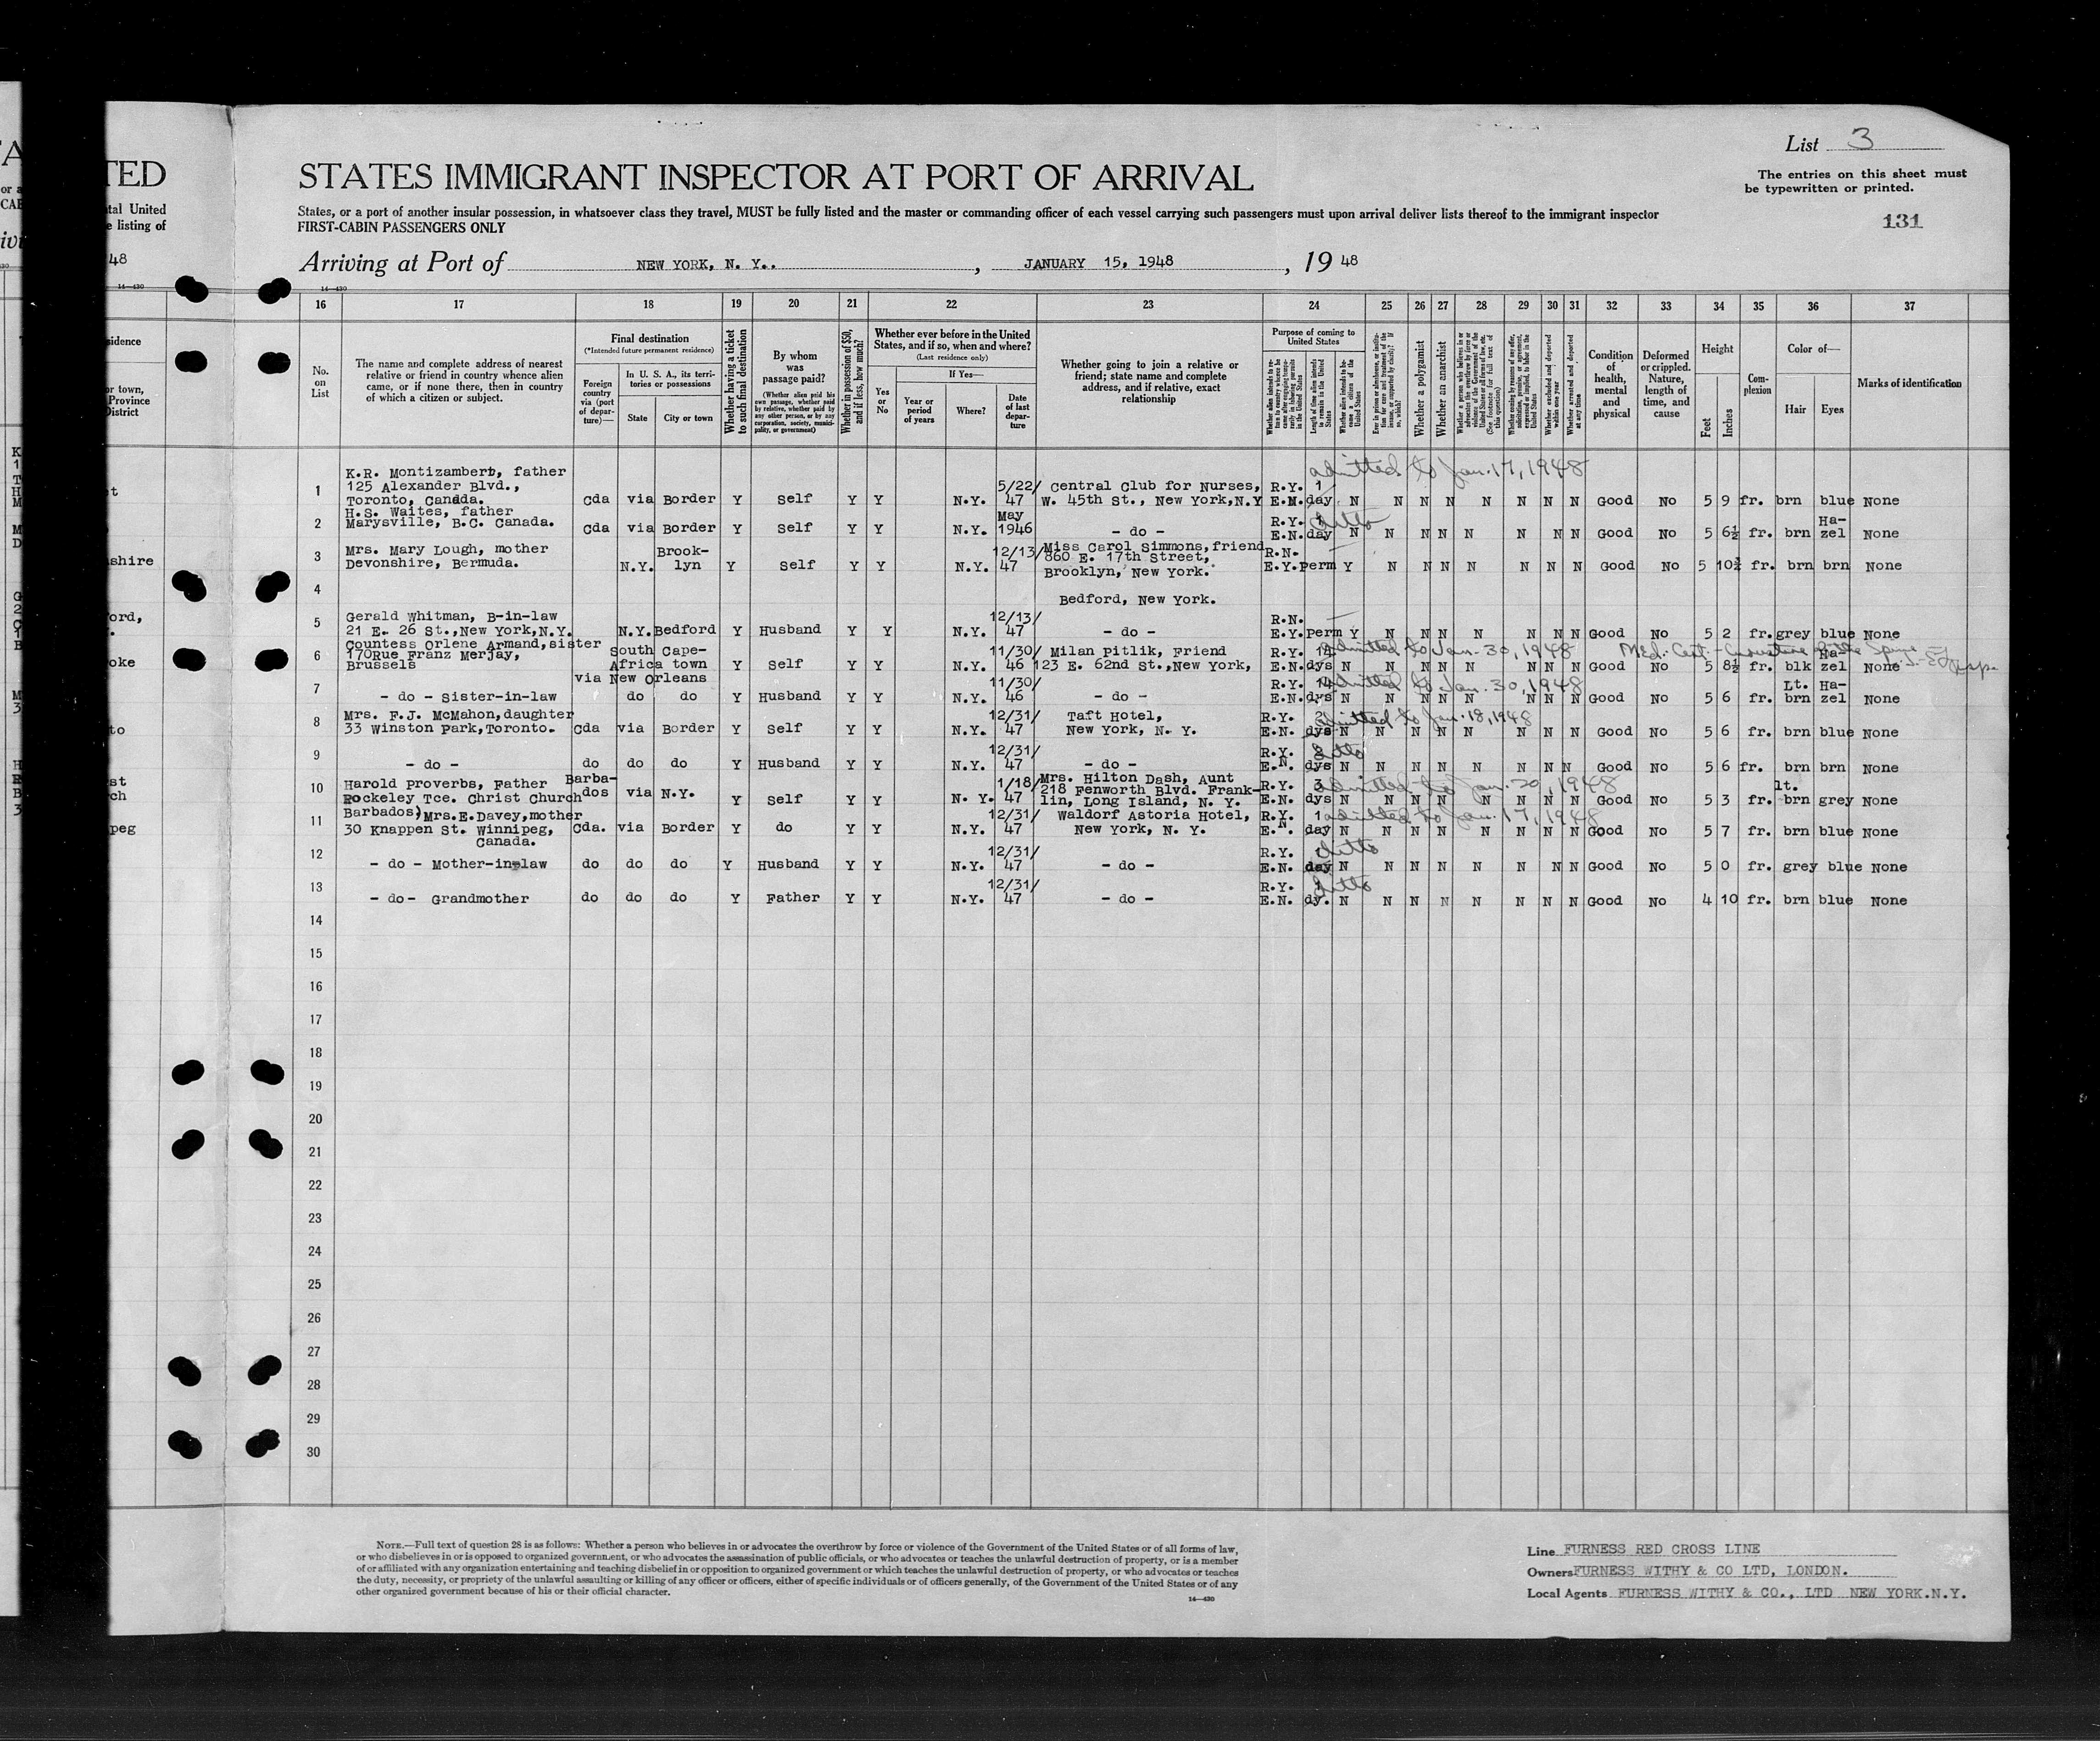 List 3
TED
STATES IMMIGRANT INSPECTOR AT PORT OF ARRIVAL
The entries on this sheet must
be typewritten or printed.
tal United
States, or a port of another insular possession, in whatsoever class they travel, MUST be fully listed and the master or commanding officer of each vessel carrying such passengers must upon arrival deliver lists thereof to the immigrant inspector
e listing of
FIRST-CABIN PASSENGERS ONLY
131
48
Arriving at Port of NEW YORK, N. Y., , JANUARY 15, 1948 , 19 48
14—430
14—430
16 17 18 19 20 21 22 23 24 25 26 27 28 29 30 31 32 33 34 35 36 37
No. on List
The name and complete address of nearest
relative or friend in country whence alien
came, or if none there, then in country
of which a citizen or subject.
Final destination
(*Intended future permanent residence)
Foreign country via (port of departure)—
In U. S. A., its territories or possessions
State
City or town
Whether having a ticket to such final destination
By whom was passage paid?
(Whether alien paid his own passage, whether paid by relative, whether paid by any other person, or by any corporation, society, municipality, or government)
Whether in possession of $50, and if less, how much?
Whether ever before in the United
States, and if so, when and where?
(Last residence only)
Yes or No
If Yes—
Year or period of years
Where?
Date of last departure
Whether going to join a relative or
friend; state name and complete
address, and if relative, exact
relationship
Purpose of coming to
United States
Length of time alien intends to remain in the United States
Whether alien intends to become a citizen of the United States
Whether a polygamist
Whether an anarchist
Whether excluded and deported within one year
Whether arrested and deported at any time
Condition of health, mental and physical
Deformed or crippled. Nature, length of time, and cause
Height
Feet
Inches
Complexion
Color of—
Hair
Eyes
Marks of identification
admitted to Jan. 17, 1948
K.R. Montizambert, father
125 Alexander Blvd., 5/22/ Central Club for Nurses, R.Y. 1
1 Toronto, Canada. Cda via Border Y Self Y Y N.Y. 47 W. 45th St., New York,N.Y E.N. day N N N N N N N N Good No 5 9 fr. brn blue None
H.S. Waites, father May R.Y. 1 ditto Ha-
2 Marysville, B.C. Canada. Cda via Border Y Self Y Y N.Y. 1946 - do - E.N. day N N N N N N N N Good No 5 6½ fr. brn zel None
Mrs. Mary Lough, mother Brook- 12/13/ Miss Carol Simmons, friend R.N.
3 Devonshire, Bermuda. N.Y. lyn Y Self Y Y N.Y. 47 860 E. 17th Street, E.Y. perm Y N N N N N N N Good No 5 10¾ fr. brn brn None
Brooklyn, New York.
4 Bedford, New York.
Gerald Whitman, B-in-law 12/13/ R.N.
5 21 E. 26 St.,New York,N.Y. N.Y. Bedford Y Husband Y Y N.Y. 47 - do - E.Y. perm Y N N N N N N N Good No 5 2 fr. grey blue None
Countess Orlene Armand,sister South Cape- 11/30/ Milan Pitlik, Friend R.Y. 14 admitted to Jan. 30, 1948 Med. Cert. - Curvature of the Spine Ha-
6 170Rue Franz Merjay, Africa town Y Self Y Y N.Y. 46 123 E. 62nd St.,New York, E.N. dys N N N N N N N N Good No 5 8½ fr. blk zel None
Brussels
via New Orleans
7 - do - Sister-in-law do do Y Husband Y Y N.Y. 11/30/ 46 - do - R.Y. 14 admitted to Jan. 30, 1948 E.N. dys N N N N N N N N Good No 5 6 fr. Lt. brn Ha- zel None
Mrs. F.J. McMahon,daughter 12/31/ Taft Hotel, R.Y. admitted to Jan. 18, 1948
8 33 Winston Park,Toronto. Cda via Border Y Self Y Y N.Y. 47 New York, N. Y. E.N. dys N N N N N N N N Good No 5 6 fr. brn blue None
9 - do - do do do Y Husband Y Y N.Y. 12/31/ 47 - do - R.Y. ditto E.N. dys N N N N N N N N Good No 5 6 fr. brn brn None
Harold Proverbs, Father Barba- 1/18/ Mrs. Hilton Dash, Aunt R.Y. 3 admitted to Jan. 20, 1948 lt.
10 Rockeley Tce. Christ Church dos via N.Y. Y Self Y Y N. Y. 47 218 Fenworth Blvd. Frank- E.N. dys N N N N N N N N Good No 5 3 fr. brn grey None
Barbados) lin, Long Island, N. Y.
Mrs.E.Davey,mother 12/31/ Waldorf Astoria Hotel, R.Y. 1 admitted to Jan. 17, 1948
11 30 Knappen St. Winnipeg, Cda. via Border Y do Y Y N.Y. 47 New York, N. Y. E.N. day N N N N N N N N Good No 5 7 fr. brn blue None
Canada.
12 - do - Mother-in-law do do do Y Husband Y Y N.Y. 12/31/ 47 - do - R.Y. ditto E.N. day N N N N N N N N Good No 5 0 fr. grey blue None
13 - do- Grandmother do do do Y Father Y Y N.Y. 12/31/ 47 - do - R.Y. ditto E.N. dy. N N N N N N N N Good No 4 10 fr. brn blue None
14
15
16
17
18
19
20
21
22
23
24
25
26
27
28
29
30
NOTE.—Full text of question 28 is as follows: Whether a person who believes in or advocates the overthrow by force or violence of the Government of the United States or of all forms of law,
or who disbelieves in or is opposed to organized government, or who advocates the assassination of public officials, or who advocates or teaches the unlawful destruction of property, or is a member
of or affiliated with any organization entertaining and teaching disbelief in or opposition to organized government or which teaches the unlawful destruction of property, or who advocates or teaches
the duty, necessity, or propriety of the unlawful assaulting or killing of any officer or officers, either of specific individuals or of officers generally, of the Government of the United States or of any
other organized government because of his or their official character.
14—430
Line FURNESS RED CROSS LINE
Owners FURNESS WITHY & CO LTD, LONDON.
Local Agents FURNESS WITHY & CO., LTD NEW YORK.N.Y.